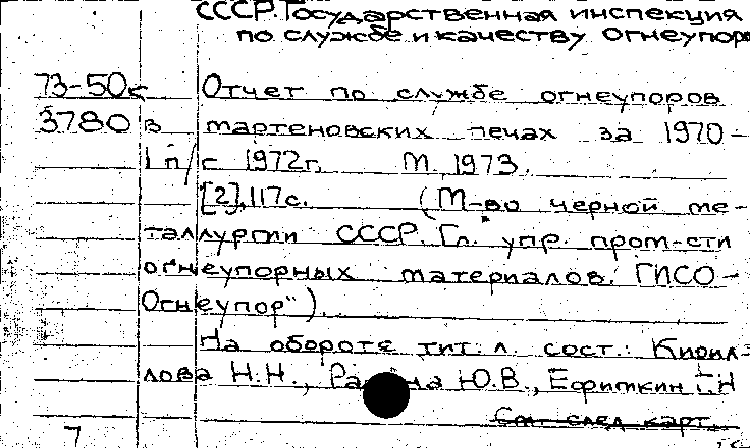 СССР. Государственная инспекция
по службе и качеству огнеупоро
73-50к Отчет по службе огнеупоров
3780 в мартеновских печах за 1970-
1 п/г 1972г. М., 1973.
[2],117с. (М-во черной ме-
таллургии СССР. Гл. упр. пром-сти
огнеупорных материалов. ГИСО-
Огнеупор").
На обороте тит. л. сост.: Кирил-
лова Н.Н., Ю.В., Ефиткин Г.Н
См. след. карт.
7